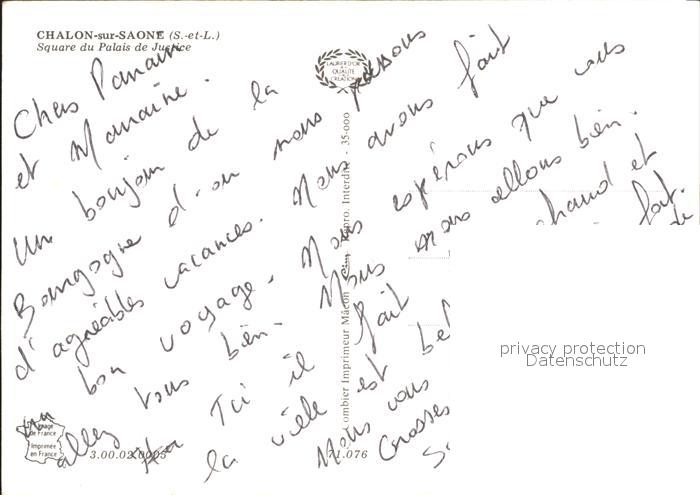 CHALON-sur-SAONE (S.-et-L.)
Square du Palais de Justice
LAURIER D'OR
DE LA
QUALITÉ
CRÉATION
Chers Parrain
et Marraine.
Un bonjour de la
Bourgogne d'ou nous passons
d'agréables vacances. Nous avons fait
bon voyage. Nous espérons que vous
allez tous bien. Nous nous allons bien.
Ici il fait chaud et
la ville est bel fait.
Nous vous de
Grosses
S.
Combier Imprimeur Mâcon Repro. Interdite - 35-000
Image
de France
Imprimée
en France
3.00.02.0005
71.076
privacy protection
Datenschutz